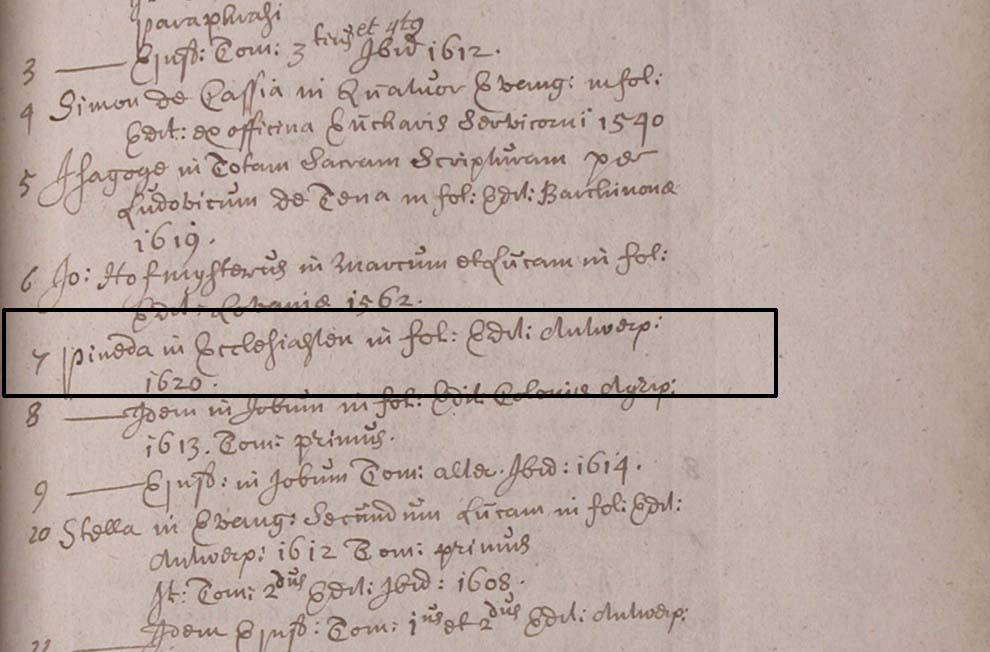 paraphrasi
3 —— Ejusd: Tom: 3 tius et 4tg Ibid 1612.
4 Simon de Cassia in Quatuor Evang: in fol:
Edit: ex officina Eucharis Cervicorni 1540
5 Isagoge in Totam Sacram Scripturam per
Ludovicum de Tena in fol: Edit: Barchinonæ
1619.
6 Jo: Hofmysterus in Marcum et Lucam in fol:
Edit: Lovaniæ 1562.
7 Pineda in Ecclesiasten in fol: Edit: Antwerp:
1620.
8 —— Idem in Jobum in fol: Edit: Coloniæ Agrip:
1613. Tom: primus.
9 —— Ejusd: in Jobum Tom: alter. Ibid: 1614.
10 Stella in Evang: Secundum Lucam in fol: Edit:
Antwerp: 1612 Tom: primus
It: Tom: 2dus Edit: Ibid: 1608.
11 —— Idem Ejusd: Tom: 1us et 2dus Edit: Antwerp: